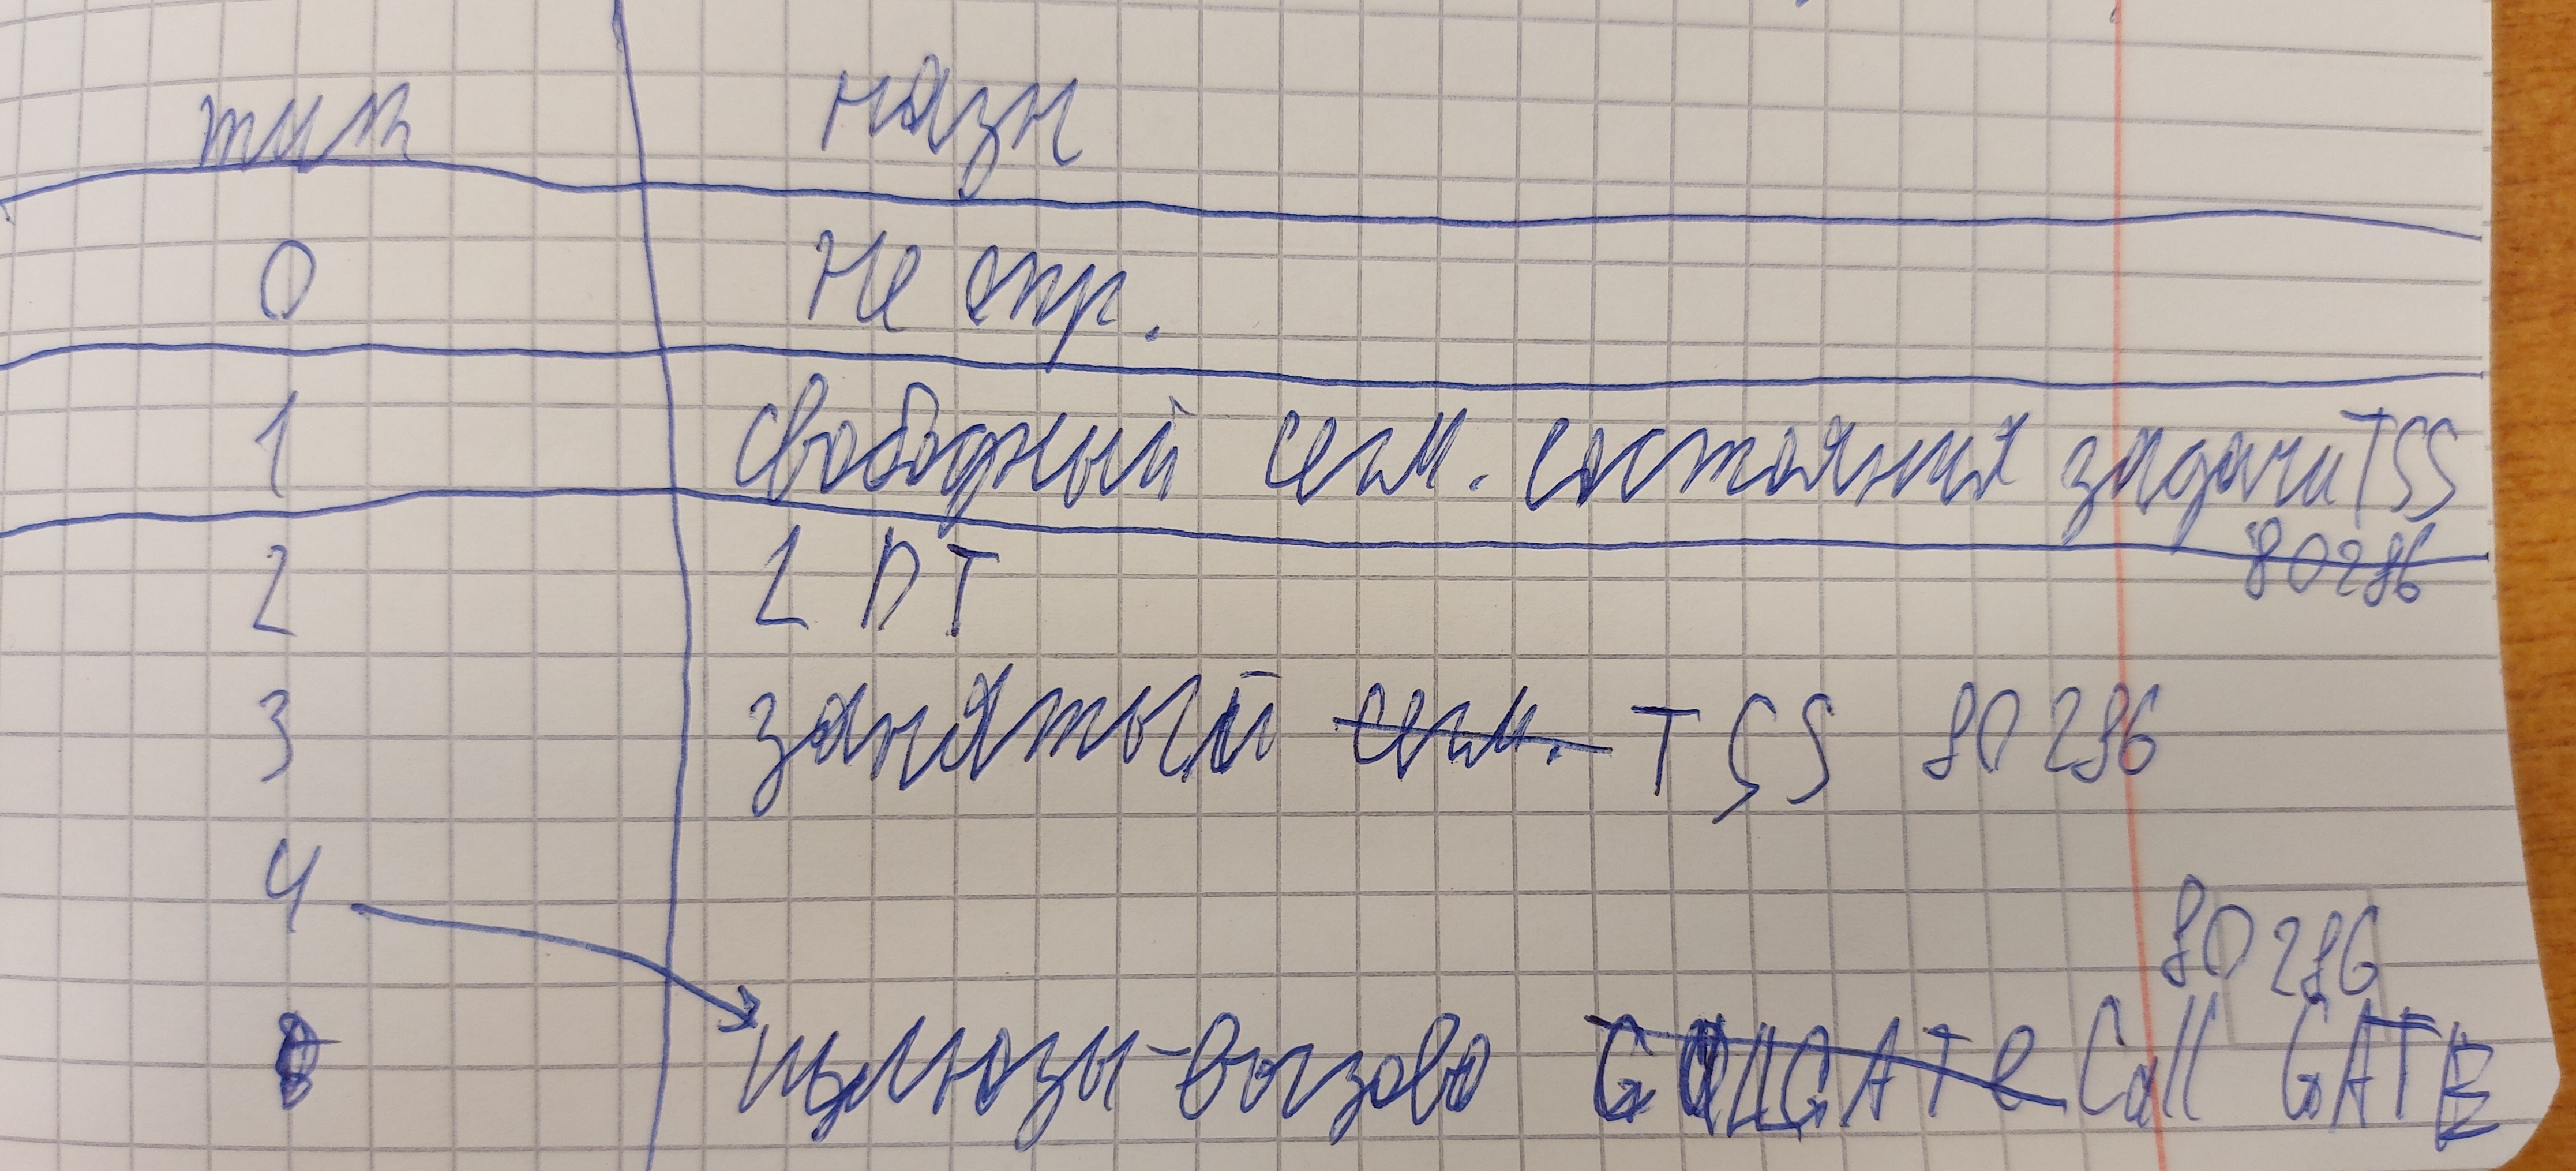 тип назн
0 не опр.
1 свободный сегм. состояния задачи TSS
80286
2 LDT
3 занятый сегм. TSS 80286
4
80286
шлюзы-вызово Call GATE